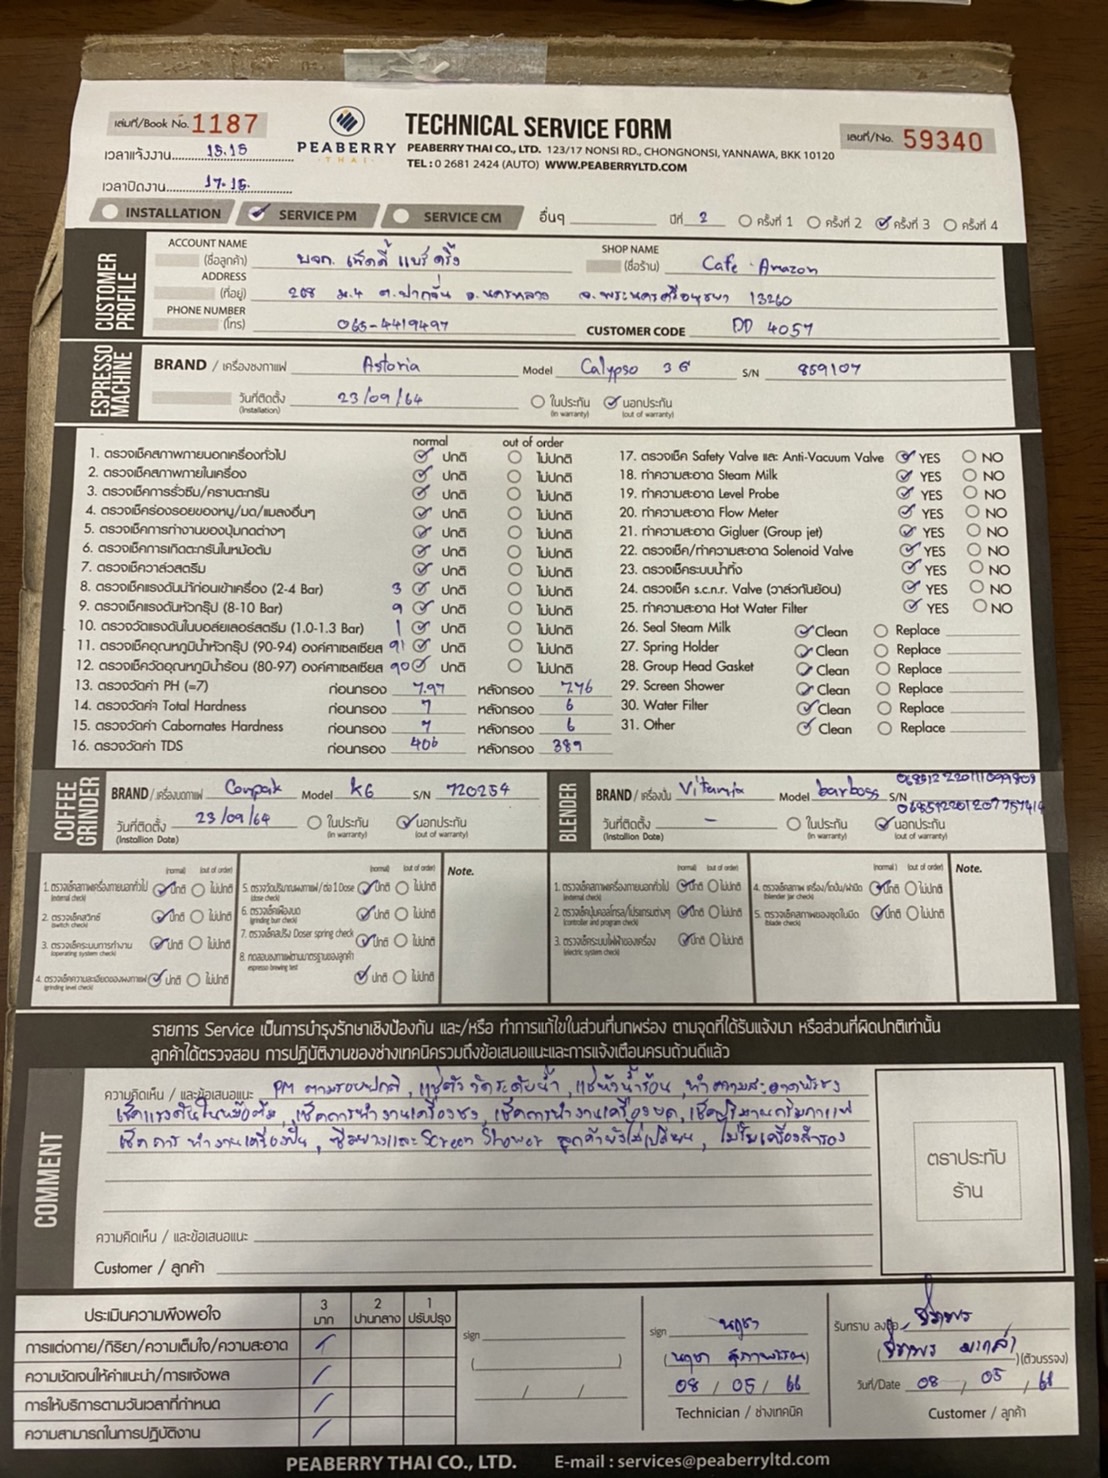 เล่มที่/Book No. 1187
PEABERRY
THAI
TECHNICAL SERVICE FORM
เลขที่/No. 59340
PEABERRY THAI CO., LTD. 123/17 NONSI RD., CHONGNONSI, YANNAWA, BKK 10120
TEL : 0 2681 2424 (AUTO) WWW.PEABERRYLTD.COM
เวลาแจ้งงาน 15.15
เวลาปิดงาน 17.15
INSTALLATION SERVICE PM SERVICE CM อื่นๆ ปีที่ 2 ครั้งที่ 1 ครั้งที่ 2 ครั้งที่ 3 ครั้งที่ 4
CUSTOMER PROFILE
ACCOUNT NAME (ชื่อลูกค้า) บจก. เท็ดดี้ แบร์ ดริ้ง SHOP NAME (ชื่อร้าน) Cafe Amazon
ADDRESS (ที่อยู่) 268 ม.4 ต.ปากจั่น อ.นครหลวง จ.พระนครศรีอยุธยา 13260
PHONE NUMBER (โทร) 065-4419497 CUSTOMER CODE DD 4057
ESPRESSO MACHINE
BRAND / เครื่องชงกาแฟ Astoria Model Calypso 3G S/N 859107
วันที่ติดตั้ง (Installation) 23/09/64 ในประกัน (in warranty) นอกประกัน (out of warranty)
normal out of order
1. ตรวจเช็คสภาพภายนอกเครื่องทั่วไป ปกติ ไม่ปกติ
2. ตรวจเช็คสภาพภายในเครื่อง ปกติ ไม่ปกติ
3. ตรวจเช็คการรั่วซึม/คราบตะกรัน ปกติ ไม่ปกติ
4. ตรวจเช็คร่องรอยของหนู/มด/แมลงอื่นๆ ปกติ ไม่ปกติ
5. ตรวจเช็คการทำงานของปุ่มกดต่างๆ ปกติ ไม่ปกติ
6. ตรวจเช็คการเกิดตะกรันในหม้อต้ม ปกติ ไม่ปกติ
7. ตรวจเช็ควาล์วสตรีม ปกติ ไม่ปกติ
8. ตรวจเช็คแรงดันน้ำก่อนเข้าเครื่อง (2-4 Bar) 3 ปกติ ไม่ปกติ
9. ตรวจเช็คแรงดันหัวกรุ๊ป (8-10 Bar) 9 ปกติ ไม่ปกติ
10. ตรวจวัดแรงดันในบอล์ยเลอร์สตรีม (1.0-1.3 Bar) 1 ปกติ ไม่ปกติ
11. ตรวจเช็คอุณหภูมิน้ำหัวกรุ๊ป (90-94) องศาเซลเซียส 91 ปกติ ไม่ปกติ
12. ตรวจเช็ควัดอุณหภูมิน้ำร้อน (80-97) องศาเซลเซียส 90 ปกติ ไม่ปกติ
13. ตรวจวัดค่า PH (=7) ก่อนกรอง 7.97 หลังกรอง 7.76
14. ตรวจวัดค่า Total Hardness ก่อนกรอง 7 หลังกรอง 6
15. ตรวจวัดค่า Cabornates Hardness ก่อนกรอง 7 หลังกรอง 6
16. ตรวจวัดค่า TDS ก่อนกรอง 406 หลังกรอง 389
17. ตรวจเช็ค Safety Valve และ Anti-Vacuum Valve YES NO
18. ทำความสะอาด Steam Milk YES NO
19. ทำความสะอาด Level Probe YES NO
20. ทำความสะอาด Flow Meter YES NO
21. ทำความสะอาด Gigluer (Group jet) YES NO
22. ตรวจเช็ค/ทำความสะอาด Solenoid Valve YES NO
23. ตรวจเช็คระบบน้ำทิ้ง YES NO
24. ตรวจเช็ค s.c.n.r. Valve (วาล์วกันย้อน) YES NO
25. ทำความสะอาด Hot Water Filter YES NO
26. Seal Steam Milk Clean Replace
27. Spring Holder Clean Replace
28. Group Head Gasket Clean Replace
29. Screen Shower Clean Replace
30. Water Filter Clean Replace
31. Other Clean Replace
COFFEE GRINDER
BRAND / เครื่องบดกาแฟ Compak Model K6 S/N 720254
วันที่ติดตั้ง (Installion Date) 23/09/64 ในประกัน (in warranty) นอกประกัน (out of warranty)
BLENDER
BRAND / เครื่องปั่น Vitamix Model barboss S/N
วันที่ติดตั้ง (Installation Date) - ในประกัน (in warranty) นอกประกัน (out of warranty)
(normal) (out of order)
1. ตรวจเช็คสภาพเครื่องภายนอกทั่วไป ปกติ ไม่ปกติ
(external check)
2. ตรวจเช็คสวิทซ์ ปกติ ไม่ปกติ
(switch check)
3. ตรวจเช็คระบบการทำงาน ปกติ ไม่ปกติ
(operating system check)
4. ตรวจเช็คความละเอียดของผงกาแฟ ปกติ ไม่ปกติ
(grinding level check)
(normal) (out of order)
5. ตรวจวัดปริมาณผงกาแฟ / ต่อ 1 Dose ปกติ ไม่ปกติ
(dose check)
6. ตรวจเช็คเฟืองบด ปกติ ไม่ปกติ
(grinding burr check)
7. ตรวจเช็คสปริง Doser spring check ปกติ ไม่ปกติ
8. ทดสอบชงกาแฟตามมาตรฐานของลูกค้า ปกติ ไม่ปกติ
espresso brewing test
Note.
(normal) (out of order)
1. ตรวจเช็คสภาพเครื่องภายนอกทั่วไป ปกติ ไม่ปกติ
(external check)
2. ตรวจเช็คปุ่มคอลโทรล/โปรแกรมต่างๆ ปกติ ไม่ปกติ
(controller and program check)
3. ตรวจเช็คระบบไฟฟ้าของเครื่อง ปกติ ไม่ปกติ
(electric system check)
(normal) (out of order)
4. ตรวจเช็คสภาพ เครื่อง/โถปั่น/ฝาปิด ปกติ ไม่ปกติ
(blender jar check)
5. ตรวจเช็คสภาพของชุดใบมีด ปกติ ไม่ปกติ
(blade check)
Note.
รายการ Service เป็นการบำรุงรักษาเชิงป้องกัน และ/หรือ ทำการแก้ไขในส่วนที่บกพร่อง ตามจุดที่ได้รับแจ้งมา หรือส่วนที่ผิดปกติเท่านั้น
ลูกค้าได้ตรวจสอบ การปฏิบัติงานของช่างเทคนิครวมถึงข้อเสนอแนะและการแจ้งเตือนครบถ้วนดีแล้ว
COMMENT
ความคิดเห็น / และข้อเสนอแนะ PM ตามรอบปกติ, แช่ตัววัดระดับน้ำ, แช่หัวน้ำร้อน, ทำความสะอาดฟรีชง
เช็คแรงดันในหม้อต้ม, เช็คการทำงานเครื่องชง, เช็คการทำงานเครื่องบด, เช็คปริมาณกรัมกาแฟ
เช็คการทำงานเครื่องปั่น, ซีลยางและ Screen Shower ลูกค้ายังไม่เปลี่ยน, ไม่รับเครื่องสำรอง
ตราประทับ
ร้าน
ความคิดเห็น / และข้อเสนอแนะ
Customer / ลูกค้า
ประเมินความพึงพอใจ 3 มาก 2 ปานกลาง 1 ปรับปรุง
การแต่งกาย/กิริยา/ความเต็มใจ/ความสะอาด
ความชัดเจนให้คำแนะนำ/การแจ้งผล
การให้บริการตามวันเวลาที่กำหนด
ความสามารถในการปฏิบัติงาน
sign
sign
08 / 05 / 66
Technician / ช่างเทคนิค
รับทราบ ลงชื่อ
(ตัวบรรจง)
วันที่/Date 08 / 05 / 66
Customer / ลูกค้า
PEABERRY THAI CO., LTD. E-mail : services@peaberryltd.com